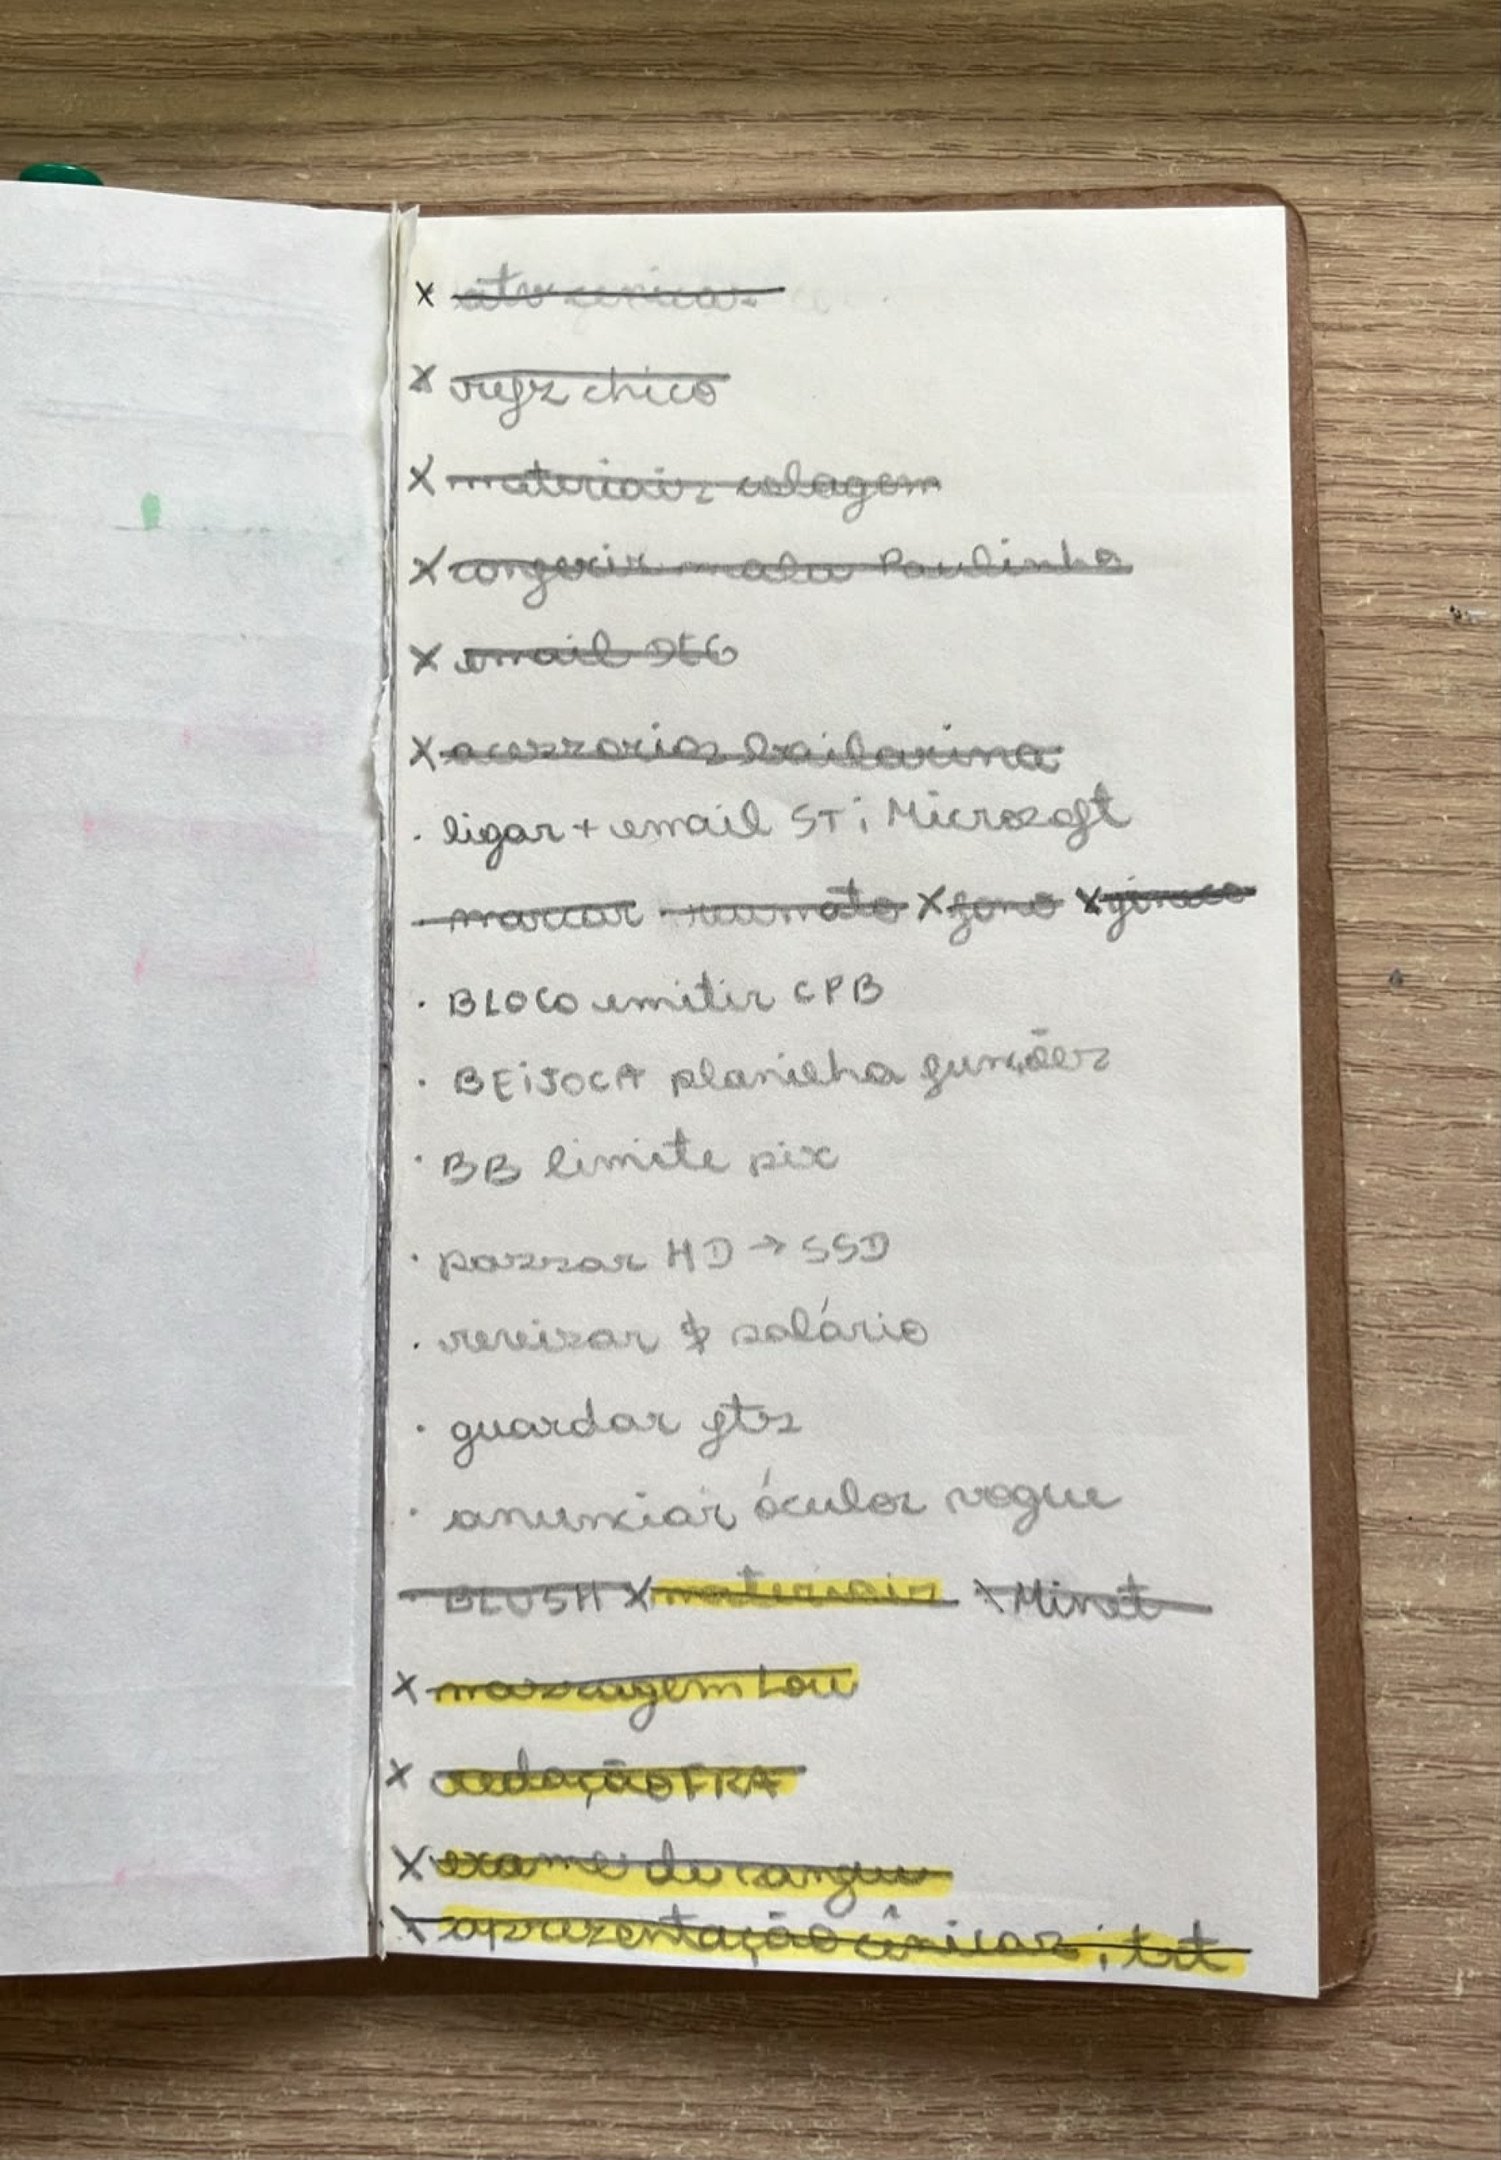 x atv cênicas
x refz chico
x materiais colagem
x conferir mala Paulinho
x email DEG
x acessorios bailarina
· ligar + email STi Microsoft
· marcar · reumato x fono x gineco
· BLOCO emitir CPB
· BEiJOCA planilha funções
· BB limite pix
· passar HD → SSD
· revisar $ salário
· guardar fts
· anunciar óculos vogue
· BLUSH x materiais x Minet
x massagem Lou
x redação FRA
x exame de sangue
x apresentação cênicas ; tst